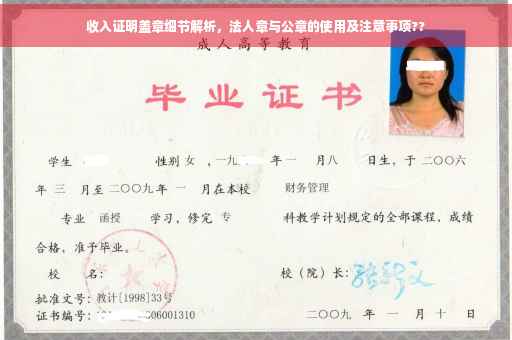 收入证明盖章细节解析，法人章与公章的使用及注意事项??
成人高等教育
毕业证书
学生 性别 女 ，一九 年 一 月 八 日生，于 二〇〇六
年 三 月至 二〇〇九 年 一 月在本校 财务管理
专业 函授 学习，修完 专 科教学计划规定的全部课程，成绩
合格，准予毕业。
校 名： 校（院）长：
批准文号：教计[1998]33号
证书编号： 06001310 二〇〇九 年 一 月 十 日